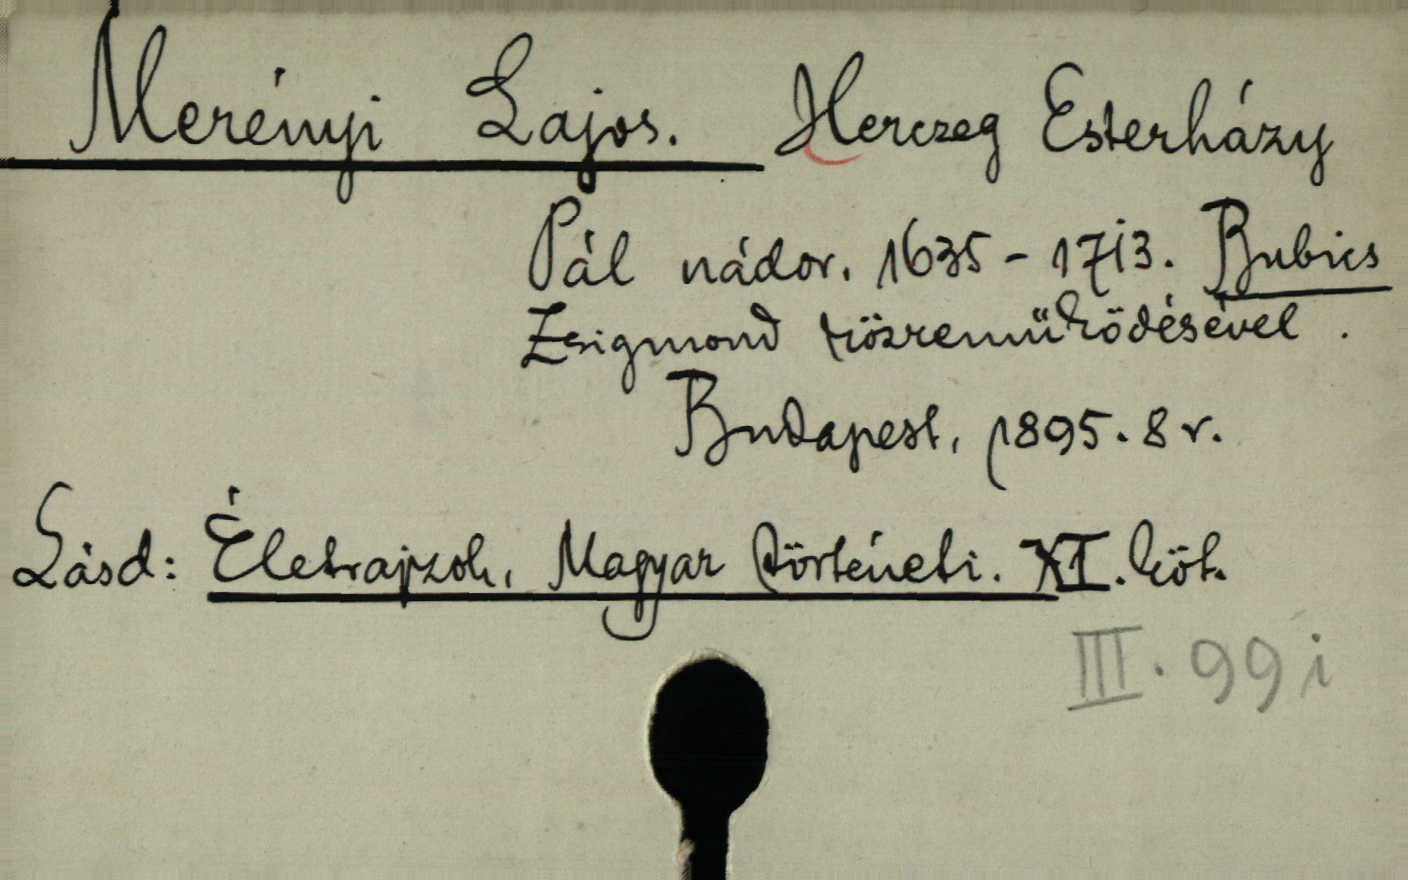 Merényi Lajos. Herczeg Esterházy
Pál nádor. 1635 - 1713. Bubics
Zsigmond közreműködésével.
Budapest, 1895. 8 r.
Lásd: Életrajzok, Magyar történeti. XI. köt.
III. 99 i